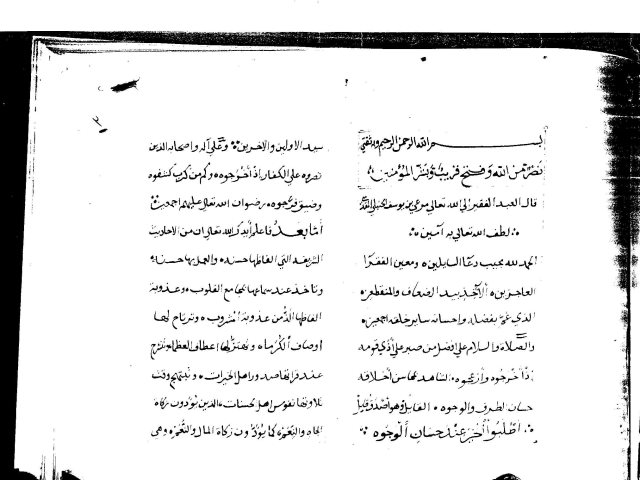 بسم الله الرحمن الرحيم وبه ثقتي
نصر من الله وفتح قريب وبشر المؤمنين
قال العبد الفقير الى الله تعالى مرعي بن يوسف الحنبلي
لطف الله تعالى به آمين
الحمد لله مجيب دعا السايلين ومعين الفقرا
العاجزين الآخذ بيد الضعاف والمنقطعين
الذي عم بفضله واحسانه ساير خلقه اجمعين
والصلاة والسلام على افضل من صبر على أذى قومه
إذ أخرجوه وازعجوه الشاهد محاسن أخلاقه
حسان الطرف والوجوه القايل وهو أصدق قيل
اطلبوا الخير عند حسان الوجوه
٢
سيد الاولين والاخرين وعلى آله واصحابه الذين
نصروه على الكفار اذ أخرجوه وكم من كرب كشفوه
وضيق فرجوه رضوان الله تعالى عليهم اجمعين
أما بعد فاعلم أيدك الله تعالى ان من الاحاديث
الشريفة التي الفاظها حسنه والعمل بها حسنه
وتاخذ عند سماعها بمجامع القلوب وعذوبة
الفاظها الذ من عذوبة المشروب وترتاح لها
اوصاف الكرماء وتهتز لها اعطاف العظماء
عند قرأتها صدور اهل الخيرات وتبتهج وقت
تلاوتها نفوس اهل الذين يؤدون زكاة
الجاه والنعمه كما يؤدون زكاة المال والنعمه وهى